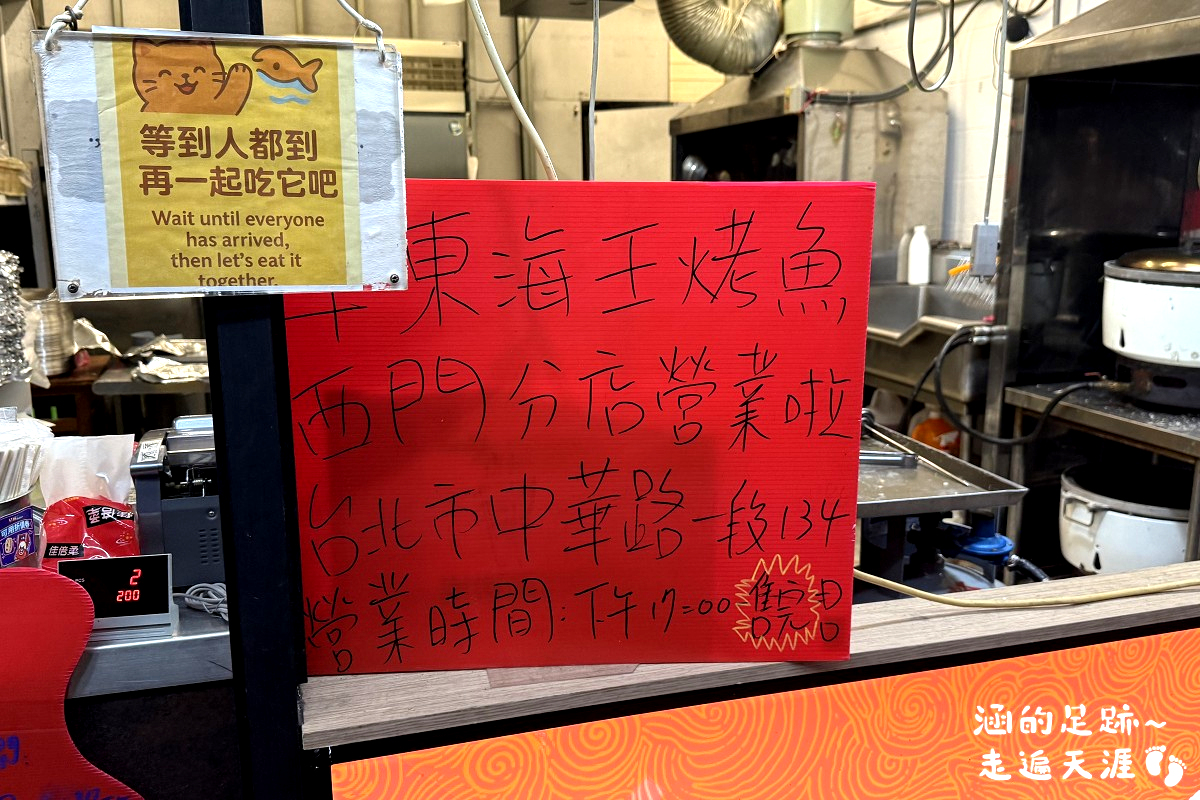 等到人都到
再一起吃它吧
Wait until everyone
has arrived,
then let's eat it
together.
東海王烤魚
西門分店營業啦
台北市中華路一段134
營業時間:下午17:00售完
佳倍柔
2
200
涵的足跡~
走遍天涯